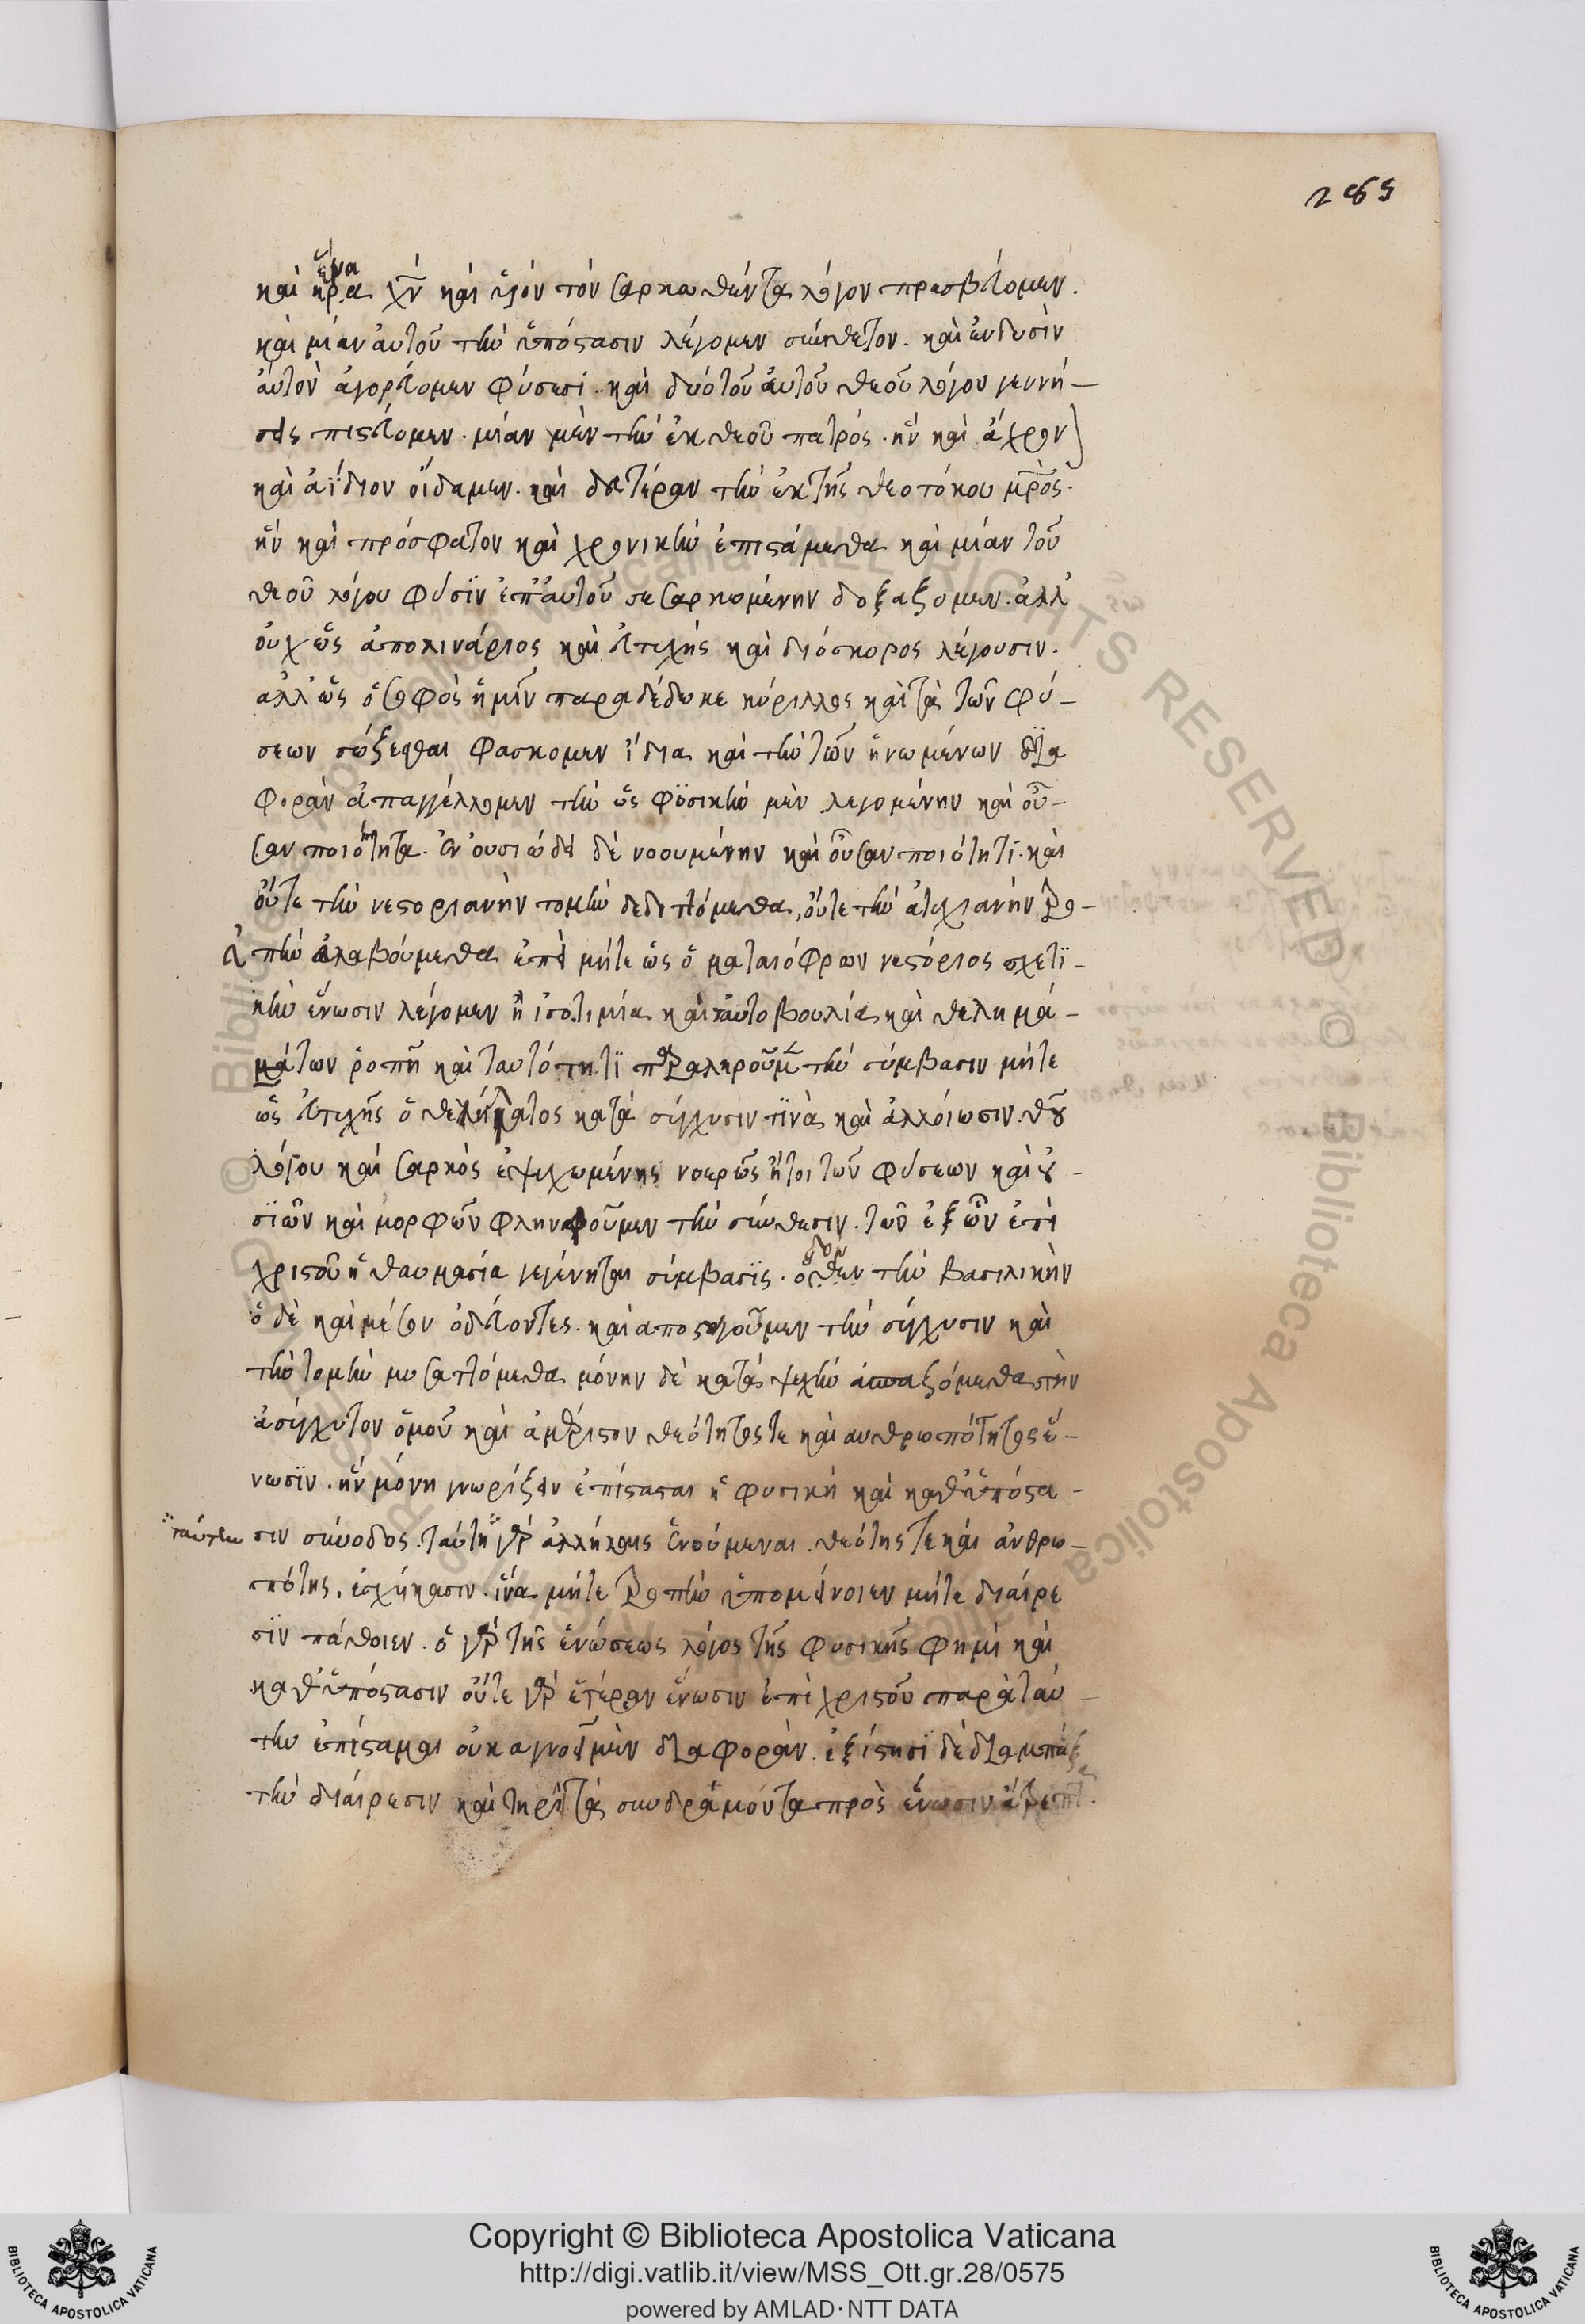 285
ἕνα
καὶ κρα χν καὶ υἱὸν τὸν σαρκωθέντα λόγον πρεσβεύομεν.
καὶ μίαν αὐτοῦ τὴν ὑπόστασιν λέγομεν σύνθετον. καὶ ἐν δυσὶν
αὐτὸν ἀγορεύομεν φύσεσι. καὶ δύο τοῦ αὐτοῦ θεοῦ λόγου γεννή-
σεις πιστεύομεν. μίαν μὲν τὴν ἐκ θεοῦ πατρός. ἣν καὶ ἄχρον
καὶ ἀΐδιον οἴδαμεν. καὶ δευτέραν τὴν ἐκ τῆς θεοτόκου μρὸς.
ἣν καὶ πρόσφατον καὶ χρονικὴν ἐπιστάμεθα καὶ μίαν τοῦ
θεοῦ λόγου φύσϊν ἐπ' αὐτοῦ σεσαρκωμένην δοξάζομεν. ἀλλ'
οὐχ ὡς ἀπολινάριος καὶ εὐτυχὴς καὶ διόσκορος λέγουσιν.
ἀλλ' ὡς ὁ σοφὸς ἡμῖν παραδέδωκε κύριλλος καὶ τὰ τῶν φύ-
σεων σώζεσθαι φασκομεν ἴδια καὶ τὴν τῶν ἡνωμένων δϊα
φορὰν ἀπαγγέλλομεν τὴν ὡς φϋσικὴν μὲν λεγομένην καὶ οὖ-
σαν ποιότητα. ἐν οὐσιώδει δὲ νοουμένην καὶ οὖσαν ποιότητι. καὶ
οὔτε τὴν νεστοριανὴν τομὴν δεδιττόμεθα, οὔτε τὴν εὐτυχιανὴν τρο-
πὴν εὐλαβούμεθα ἐπεὶ μήτε ὡς ὁ ματαιόφρων νεστόριος σχετϊ-
κὴν ἕνωσιν λέγομεν ἢ ἰσοτιμία καὶ ταὐτοβουλία καὶ θελημά-
μάτων ῥοπῇ καὶ ταυτότητϊ παραληροῦμεν τὴν σύμβασιν μήτε
ὡς εὐτυχὴς ὁ θεήλατος κατὰ σύγχυσιν τϊνὰ καὶ ἀλλοίωσιν. θεοῦ
λόγου καὶ σαρκὸς ἐψυχωμένης νοερῶς ἤτοι τῶν φύσεων καὶ οὐ-
σϊῶν καὶ μορφῶν φληναφοῦμεν τὴν σύνθεσιν. τῶν ἐξ ὧν ἐπὶ
χριστοῦ ἡ θαυμασία γεγένηται σύμβασϊς. ὅθεν τὴν βασιλικὴν
ὁ δὲ καὶ μέσον ὁδεύοντες. καὶ αποστυγοῦμεν τὴν σύγχυσιν καὶ
τὴν τομὴν μυσαττόμεθα μόνην δὲ κατὰ ψυχὴν ἀσπαζόμεθα τὴν
ἀσύγχυτον ὁμοῦ καὶ ἀμέριστον θεότητός τε καὶ ανθρωπότητος ἕ-
νωσϊν. ἣν μόνη γνωρίζειν ἐπίσταται ἡ φυσικὴ καὶ καθ' ὑπόστα-
ταύτην σιν σύνοδος. ταύτη γὰρ ἀλλήλαις ἑνούμεναι. θεότης τε καὶ ἀνθρω-
πότης. ἐσχήκασιν. ἵνα μήτε τροπὴν ὑπομείνοιεν μήτε διαίρε
σϊν πάθοιεν. ὁ γὰρ τῆς ἑνώσεως λόγος τῆς φυσικῆς φημὶ καὶ
καθ' ὑπόστασιν οὔτε γὰρ ἑτέραν ἕνωσιν ἐπὶ χριστοῦ παρὰ ταύ-
την ἐπίσταμαι οὐκ αγνοεῖ μὲν διαφοράν. ἐξίστησϊ δὲ διαμπὰξ
τὴν διαίρεσιν καὶ τηρεῖ τὰ συνδραμόντα πρὸς ἕνωσιν ἄτρεπτ.
Copyright © Biblioteca Apostolica Vaticana
http://digi.vatlib.it/view/MSS_Ott.gr.28/0575
powered by AMLAD·NTT DATA